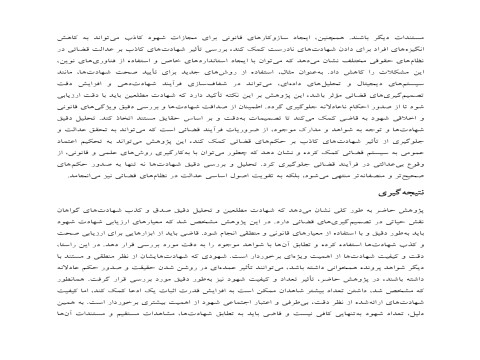 مستندات دیگر باشند. همچنین، ایجاد سازوکارهای قانونی برای مجازات شهود کاذب می‌تواند به کاهش
انگیزه‌های افراد برای دادن شهادت‌های نادرست کمک کند، بررسی تأثیر شهادت‌های کاذب بر عدالت قضائی در
نظام‌های حقوقی مختلف نشان می‌دهد که می‌توان با ایجاد استانداردهای خاص و استفاده از فناوری‌های نوین،
این مشکلات را کاهش داد. به‌عنوان مثال، استفاده از روش‌های جدید برای تأیید صحت شهادت‌ها، مانند
سیستم‌های دیجیتال و تحلیل‌های داده‌ای، می‌تواند در شفاف‌سازی فرآیند شهادت‌دهی و افزایش دقت
تصمیم‌گیری‌های قضائی مؤثر باشد، این پژوهش بر این نکته تأکید دارد که شهادت مطلعین باید با دقت ارزیابی
شود تا از صدور احکام ناعادلانه جلوگیری گردد. اطمینان از صداقت شهادت‌ها و بررسی دقیق ویژگی‌های قانونی
و اخلاقی شهود به قاضی کمک می‌کند تا تصمیمات به‌دقت و بر اساس حقایق مستند اتخاذ کند. تحلیل دقیق
شهادت‌ها و توجه به شواهد و مدارک موجود، از ضروریات فرآیند قضائی است که می‌تواند به تحقق عدالت و
جلوگیری از تأثیر شهادت‌های کاذب بر حکم‌های قضائی کمک کند، این پژوهش می‌تواند به تحکیم اعتماد
عمومی به سیستم قضائی کمک کرده و نشان دهد که چطور می‌توان با به‌کارگیری روش‌های علمی و قانونی، از
وقوع بی‌عدالتی در فرآیند قضائی جلوگیری کرد. تحلیل و بررسی دقیق شهادت‌ها نه تنها به صدور حکم‌های
صحیح‌تر و منصفانه‌تر منتهی می‌شود، بلکه به تقویت اصول اساسی عدالت در نظام‌های قضائی نیز می‌انجامد.
نتیجه‌گیری
پژوهش حاضر به طور کلی نشان می‌دهد که شهادت مطلعین و تحلیل دقیق صدق و کذب شهادت‌های گواهان
نقش حیاتی در تصمیم‌گیری‌های قضائی دارد. در این پژوهش مشخص شد که معیارهای ارزیابی شهادت شهود
باید به‌طور دقیق و با استفاده از معیارهای قانونی و منطقی انجام شود. قاضی باید از ابزارهایی برای ارزیابی صحت
و کذب شهادت‌ها استفاده کرده و تطابق آن‌ها با شواهد موجود را به دقت مورد بررسی قرار دهد. در این راستا،
دقت و کیفیت شهادت‌ها از اهمیت ویژه‌ای برخوردار است. شهودی که شهادت‌هایشان از نظر منطقی و مستند با
دیگر شواهد پرونده همخوانی داشته باشد، می‌توانند تأثیر عمده‌ای در روشن شدن حقیقت و صدور حکم عادلانه
داشته باشند، در پژوهش حاضر، تأثیر تعداد و کیفیت شهود نیز به‌طور دقیق مورد بررسی قرار گرفت. همانطور
که مشخص شد، داشتن تعداد بیشتر شاهدان ممکن است به افزایش قدرت اثبات یک ادعا کمک کند، اما کیفیت
شهادت‌های ارائه‌شده از نظر دقت، بی‌طرفی و اعتبار اجتماعی شهود از اهمیت بیشتری برخوردار است. به همین
دلیل، تعداد شهود به‌تنهایی کافی نیست و قاضی باید به تطابق شهادت‌ها، مشاهدات مستقیم و مستندات آن‌ها